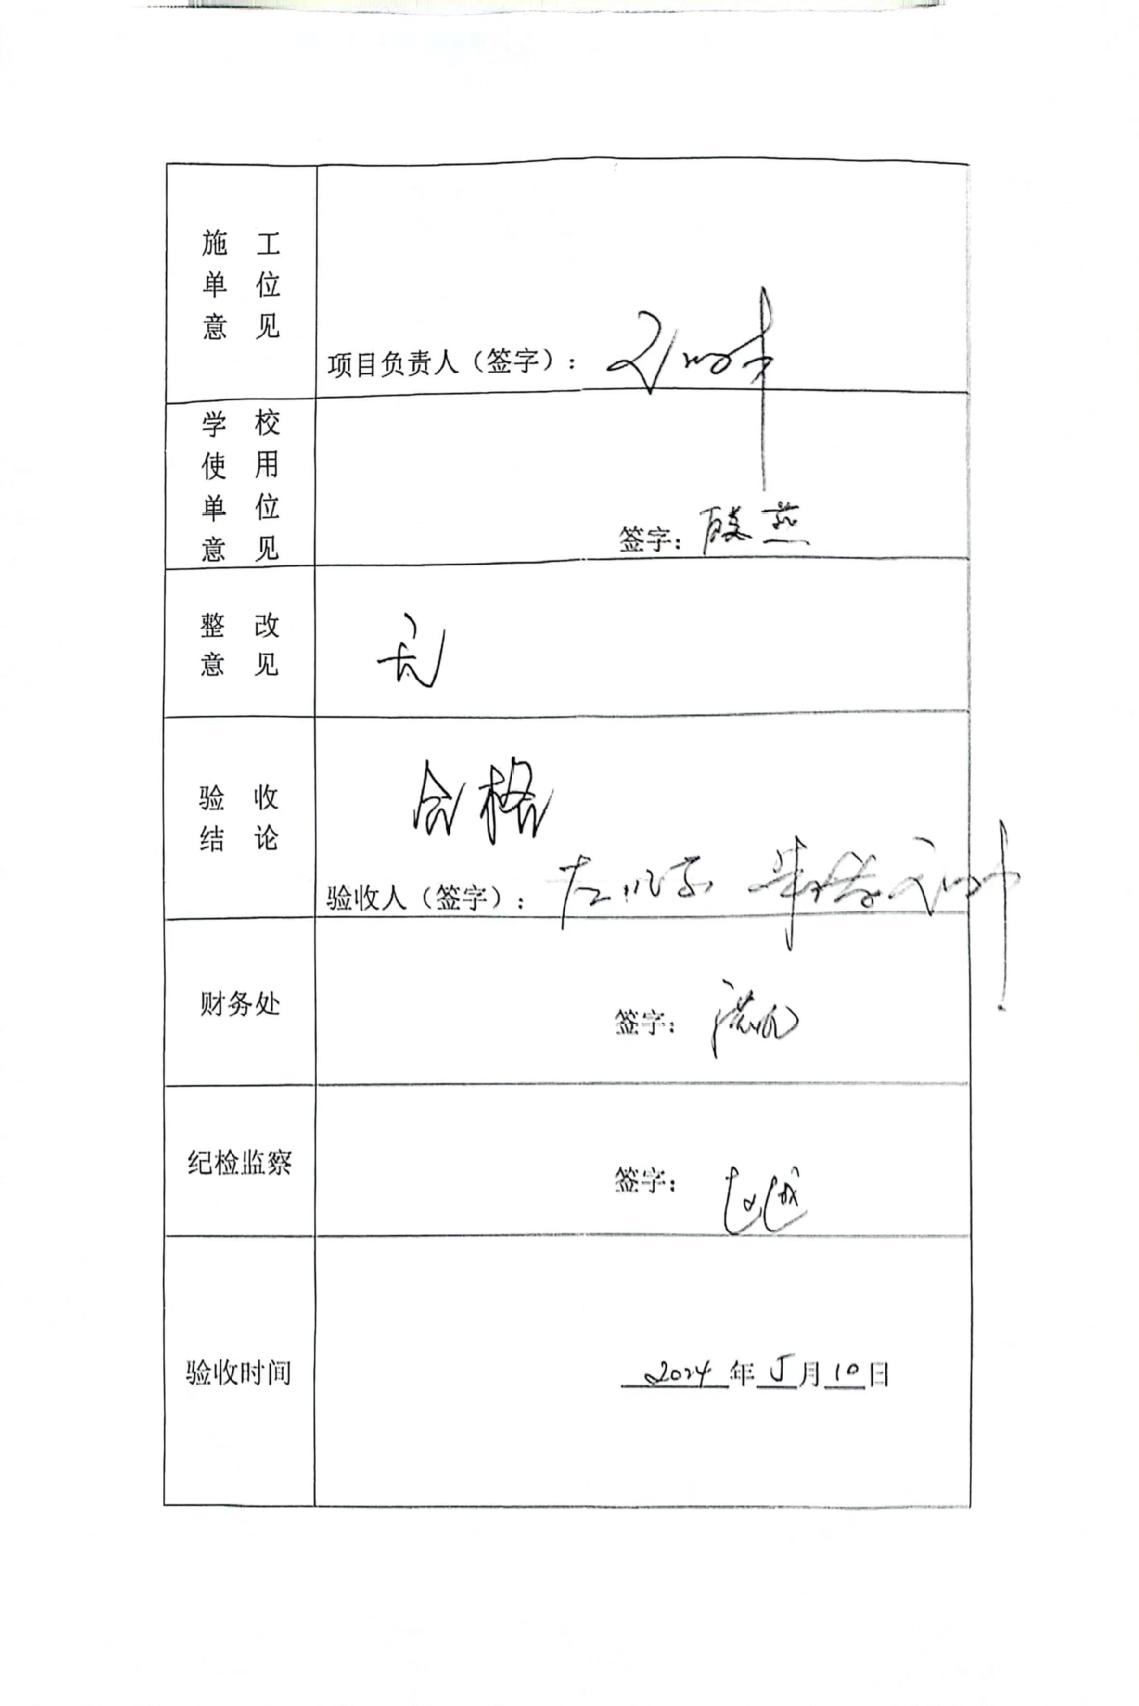 施工
单位
意见
项目负责人（签字）：
学校
使用
单位
意见
签字：殷燕
整改
意见
无
验收
结论
合格
验收人（签字）：
财务处
签字：
纪检监察
签字：
验收时间
2024年5月10日